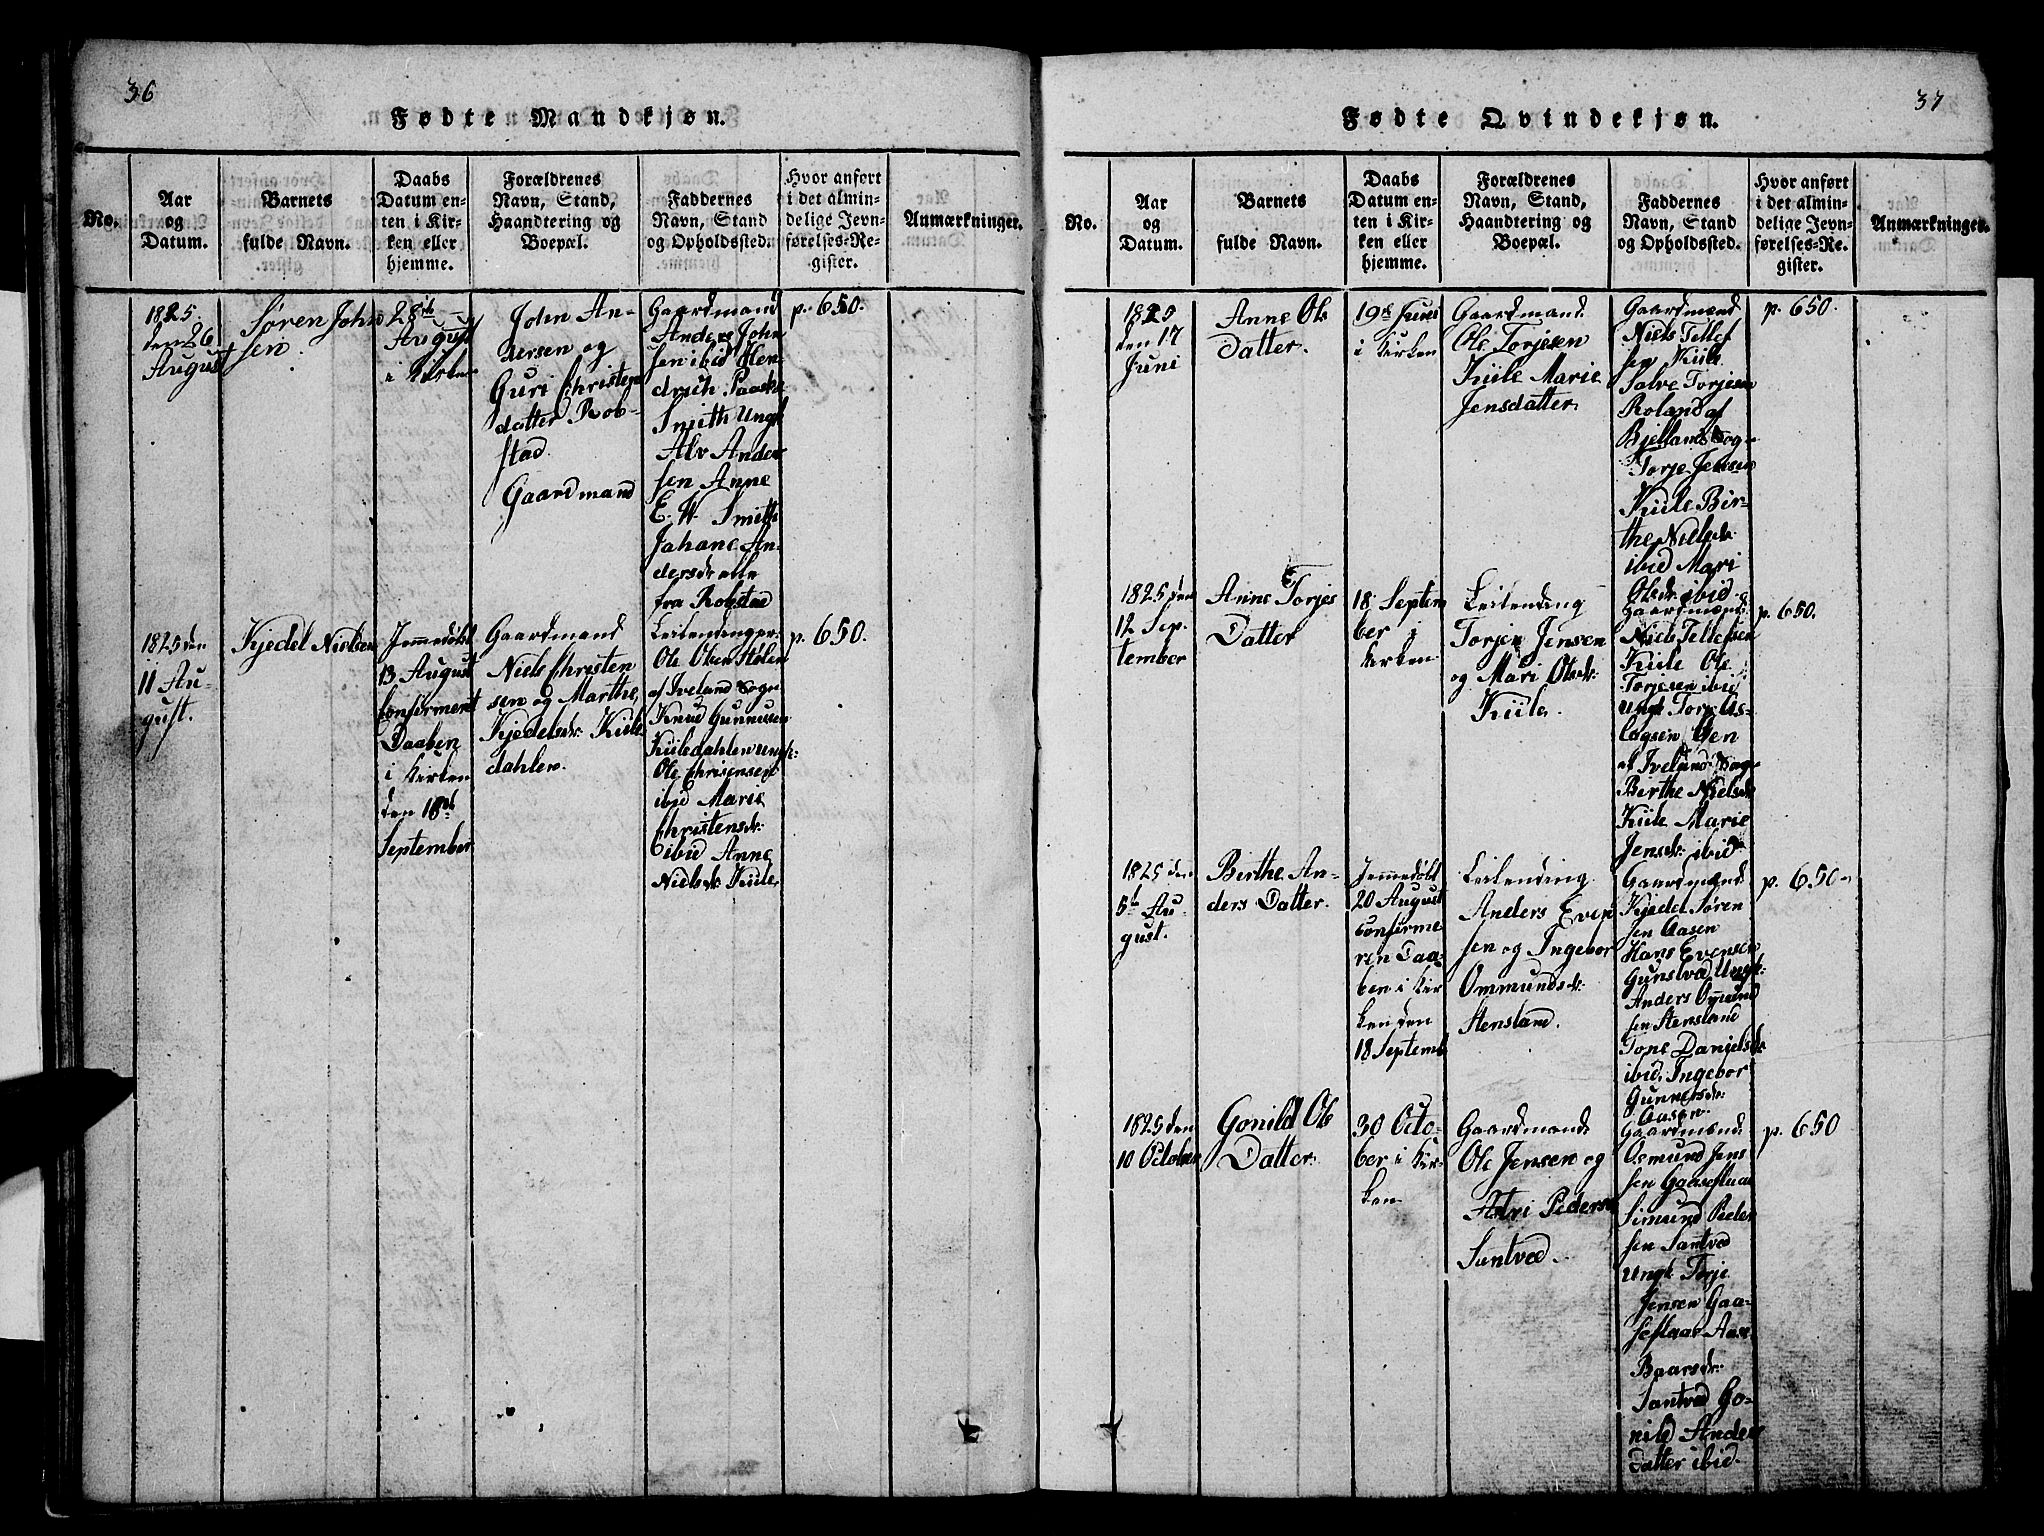 36
Fødte Mandkjøn.
No.
Aar
og
Datum.
Barnets
fulde Navn.
Daabs
Datum en-
ten i Kir-
ken eller
hjemme.
Forældrenes
Navn, Stand,
Haandtering og
Boepæl.
Faddernes
Navn, Stand
og Opholdssted.
Hvor anført
i det almin-
delige Jevn-
førelses-Re-
gister.
Anmærkninger.
1825.
den 26
August
Søren John
sen.
28de
August
i Kirken
John An-
dersen og
Guri Christen
datter Rob-
stad.
Gaardmand
Gaardmand
Anders John
sen ibid Hen-
drich Paaske
Smith Ungk
Alv Ander
sen Anne
E. W. Smith
Johane An-
dersdr alle
fra Robstad
p. 650.
1825 den
11 Au-
gust.
Kjedel Nielsen
Jemmedøbt
13 August
Confirment
Daaben
i Kirken
den 18de
September
Gaardmand
Niels Christen
sen og Marthe
Kjedelsdr. Kiile
dahlen.
Leilendinger:
Ole Olsen Stølen
af Iveland Sogn
Knud Gunnusen
Kiiledahlen Ungk:
Ole Chrisensen
ibid Marie
Christensdr:
ibid Anne
Nielsdr. Kiile.
p. 650.
37
Fødte Qvindekjøn.
No.
Aar
og
Datum.
Barnets
fulde Navn.
Daabs
Datum en-
ten i Kir-
ken eller
hjemme.
Forældrenes
Navn, Stand,
Haandtering og
Boepæl.
Faddernes
Navn, Stand
og Opholdssted.
Hvor anført
i det almin-
delige Jevn-
førelses-Re-
gister.
Anmærkninger.
1825
den 17
Juni
Anne Ols
Datter.
19de Juni
i Kirken
Gaardmand
Ole Torjesen
Kiile Marie
Jensdatter.
Gaardmænd
Niels Tellef
sen Kiile
Salve Torjesen
Roland af
Bjellands Sog-
Torje Jensen
Kiile Bir-
the Nielsdr.
ibid Mari
Olsdr. ibid
p. 650.
1825 den
12 Sep-
tember
Anne Torjes
Datter
18 Septem
ber i
Kirken
Leilending
Torjer Jensen
og Mari Olsdr:
Kiile.
Gaardmænd:
Niels Tellefsen
Kiile Ole
Torjesen ibid
Ungk Torje As-
lagsen
af Iveland Sog-
Birthe Nielsdr
Kiile Marie
Jensdr. ibid
p. 650.
1825 den
5te Au-
gust.
Birthe An-
ders Datter.
Jemmedøbt
20 August
Confirme
ren Daa-
ben i Kir
ken den
18 Septemb
Leilending
Anders Even
sen og Ingebor
Ommundsdr.
Stensland.
Gaardmænd
Kjedel Søren
sen Aasen
Hans Evensen
Gunstvad Ungk:
Anders Omund
sen Stensland
Tone Danielsdr
ibid, Ingebor
Gunnersdr:
Aasen.
p. 650
1825 den
10 October
Gonild Ols
Datter.
30 Octo-
ber i Kir-
ken
Gaardmand
Ole Jensen og
Astri Peders
Santved.
Gaardmænd
Osmund Jens
sen Gaaseflaae
Simund Peder
sen Santved
Ungk Torje
Jensen Gaa-
seflaae Aase
Baarsdr.
Santved Go-
nild Anders
Datter ibid.
p. 650